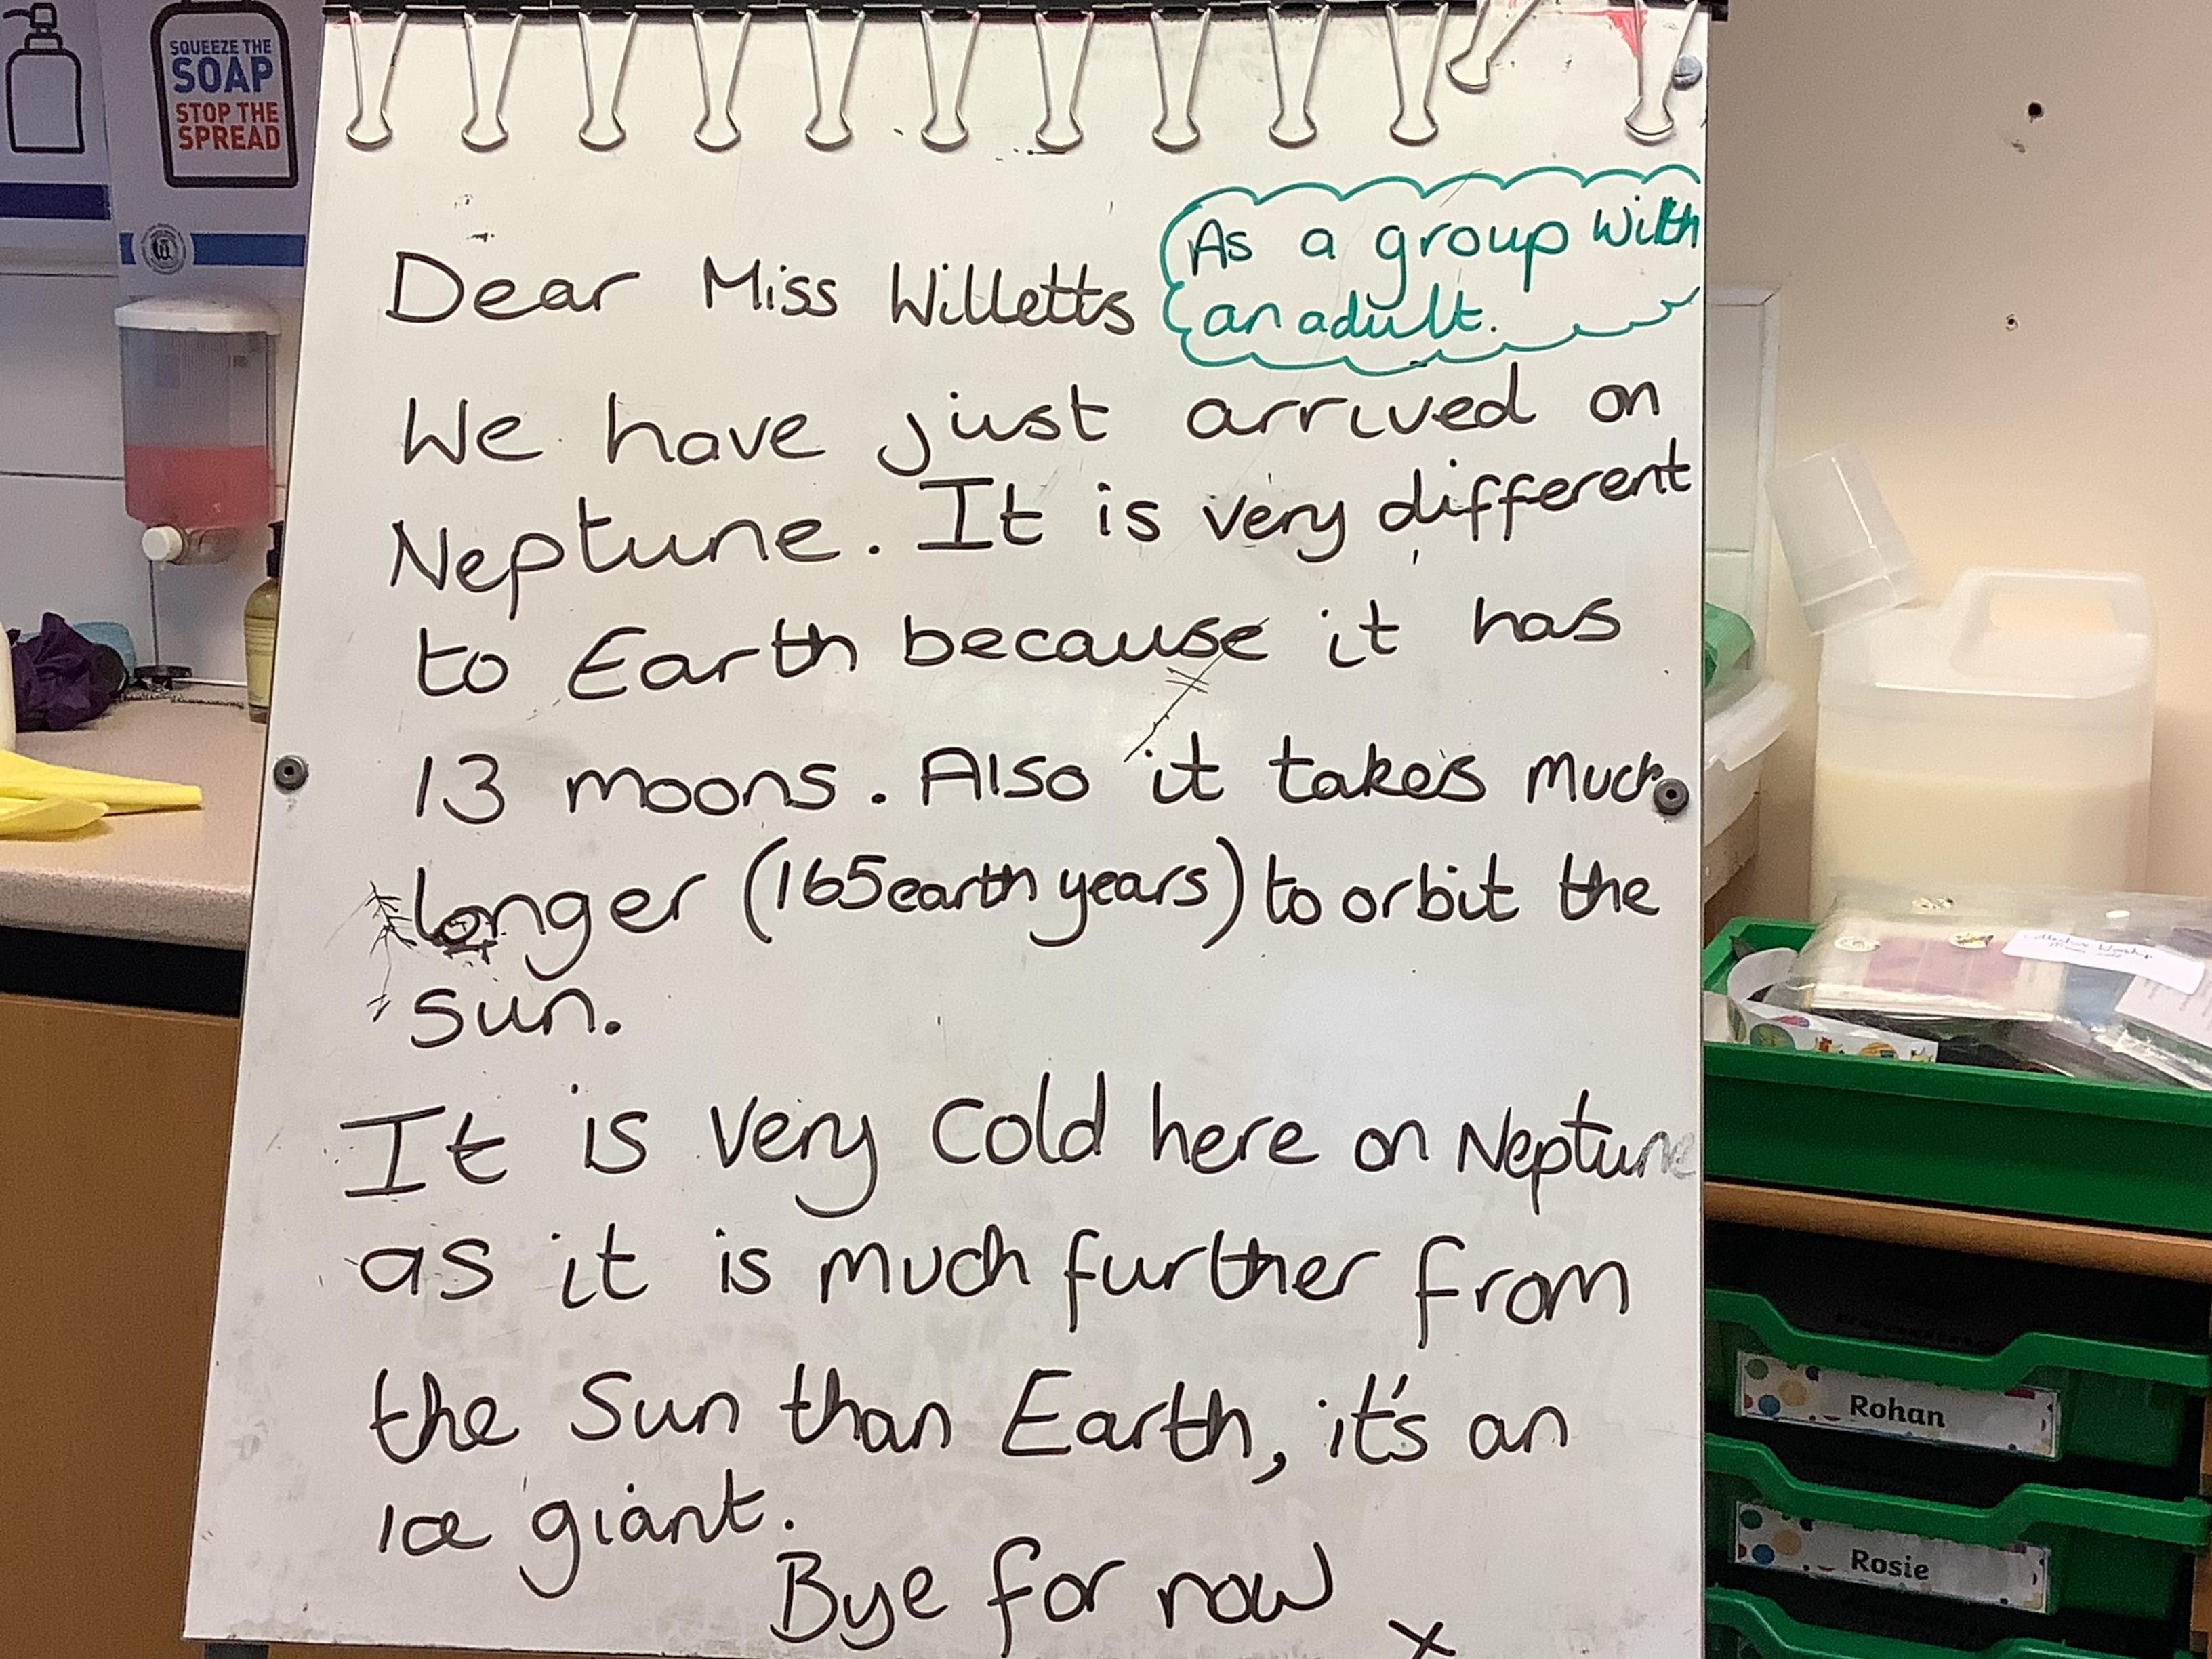 SQUEEZE THE
SOAP
STOP THE
SPREAD
As a group with
an adult.
Dear Miss Willetts
We have just arrived on
Neptune. It is very different
to Earth because it has
13 moons. Also it takes much
longer (165 earth years) to orbit the
sun.
It is very cold here on Neptune
as it is much further from
the Sun than Earth, it's an
ice giant.
Bye for now
x
Rohan
Rosie